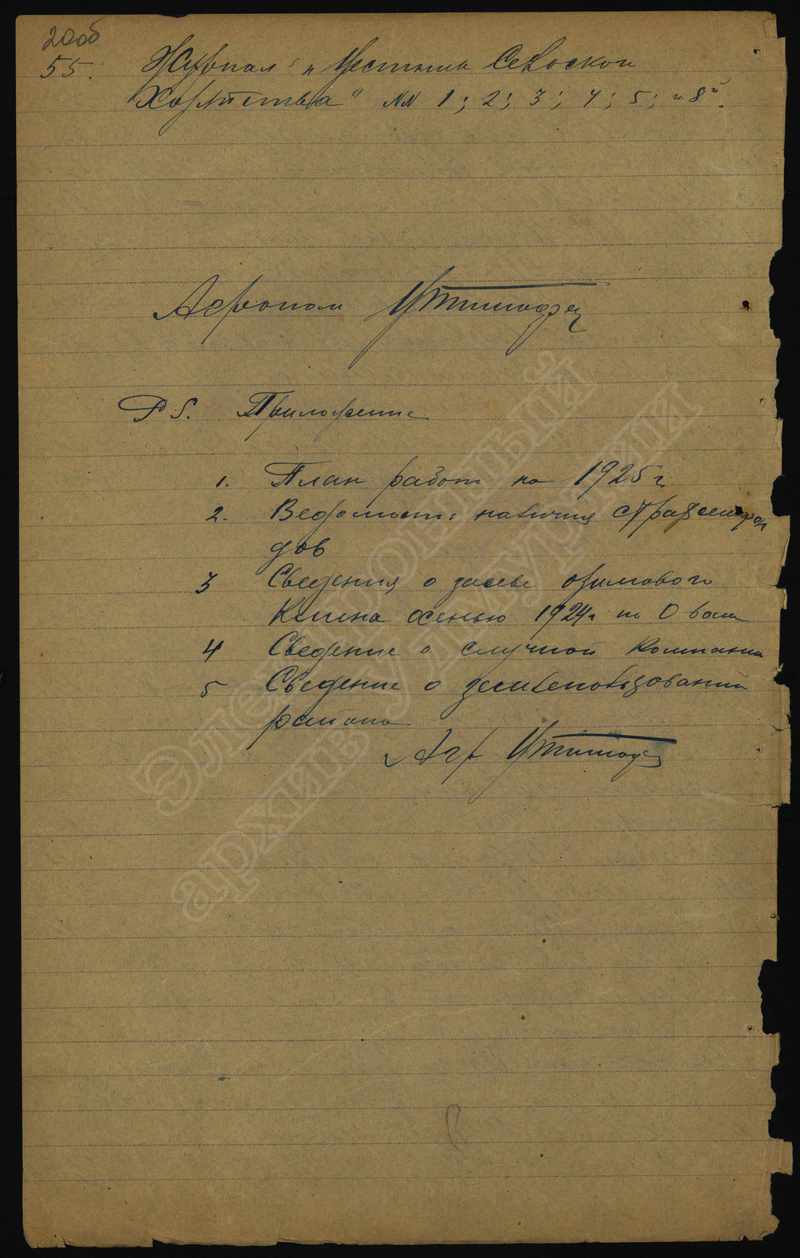 200б
55. Журнал „Вестник Сельскои
Хозяиства" NN 1; 2; 3; 4; 5; „8".
Агроном
PS. Приложение
1. План работ на 1925 г
2. Ведомость наличия
дов
3 Сведения о засеве озимового
Клина осенью 1924 г по О-вам
4 Сведение о случной Компании
5 Сведение о землепользовании
района
Агр
Электронный
архив Удмуртии